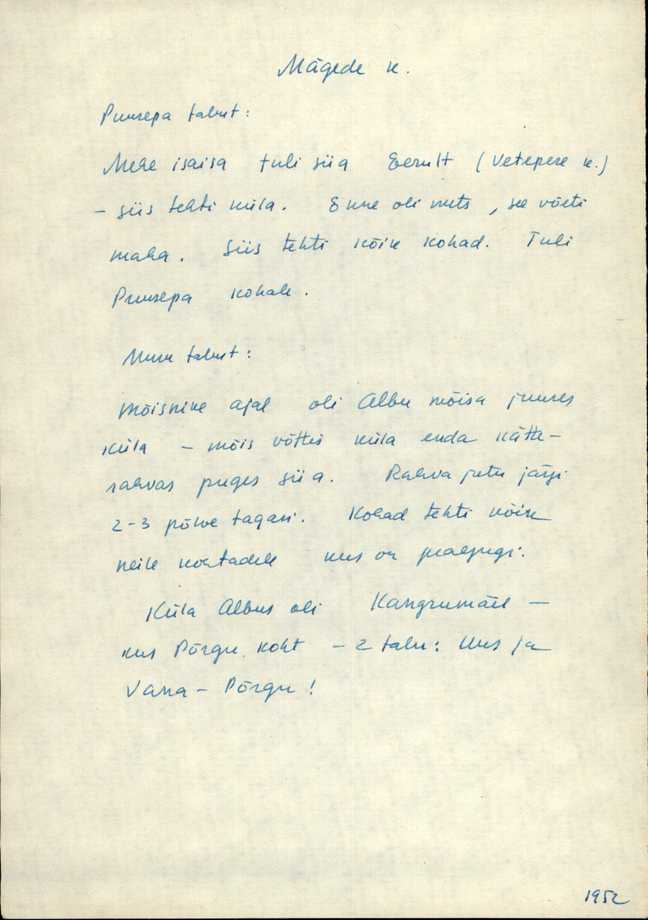 Mägede k.
Puusepa talust:
Mehe isaisa tuli siia Eerult (Vetepere k.)
- siis tehti küla. Enne oli mets, see võeti
maha. Siis tehti kõik kohad. Tuli
Puusepa kohale.
Muu talust:
Mõisnike ajal oli Albu mõisa juures
küla - mõis võttis küla enda kätte -
rahvas puges siia. Rahva jutu järgi
2-3 põlve tagasi. Kohad tehti kõik
neile kohtadele kus on praegugi.
Küla Albus oli Kangrumäel -
kus Põrgu koht - 2 talu: Uus ja
Vana-Põrgu!
1952